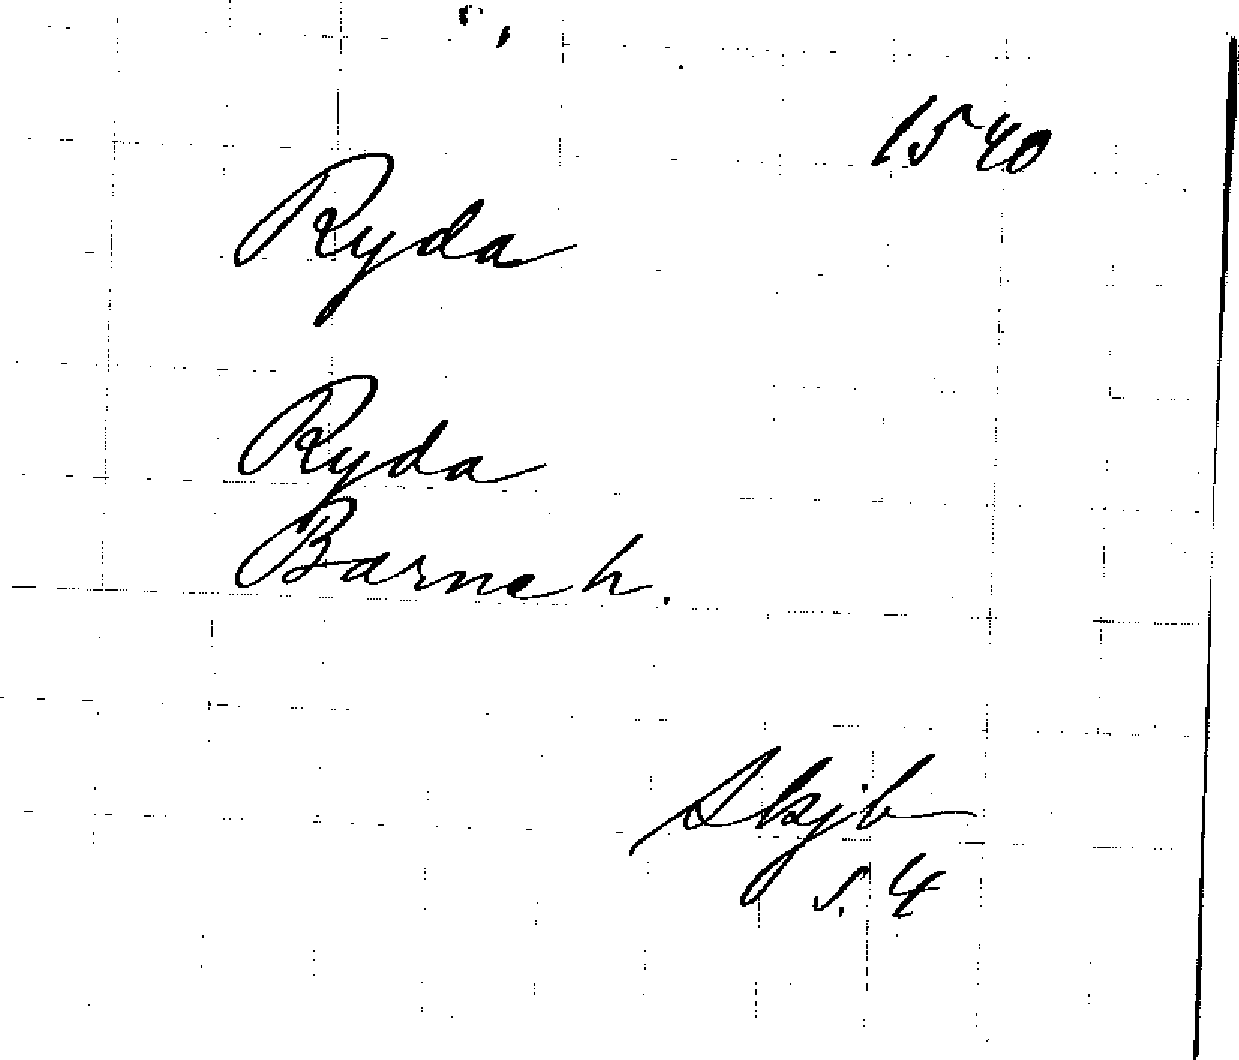 1540
Ryda
Ryda
Barneh.
Skjb
s. 4